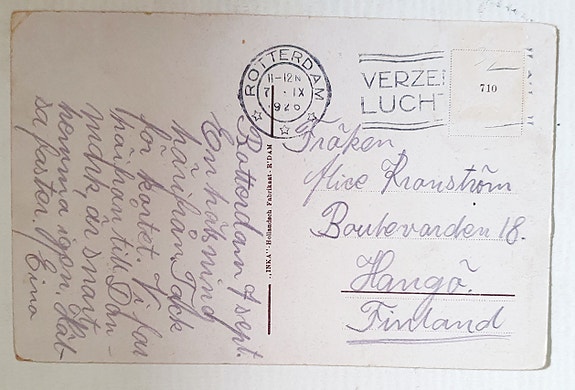 ROTTERDAM
11-12N
7.IX
1926
VERZE
LUCH
710
Rotterdam 7 sept.
En hälsning
härifrån. Tack
för kortet. Vi far
härifrån till Dan-
mark, är snart
hemma igen. Häl-
sa faster. 
Eina
"INKA"-Hollandsch Fabrikaat-R'DAM
Fröken
Alice Kranström
Boulevarden 18.
Hangö.
Finland